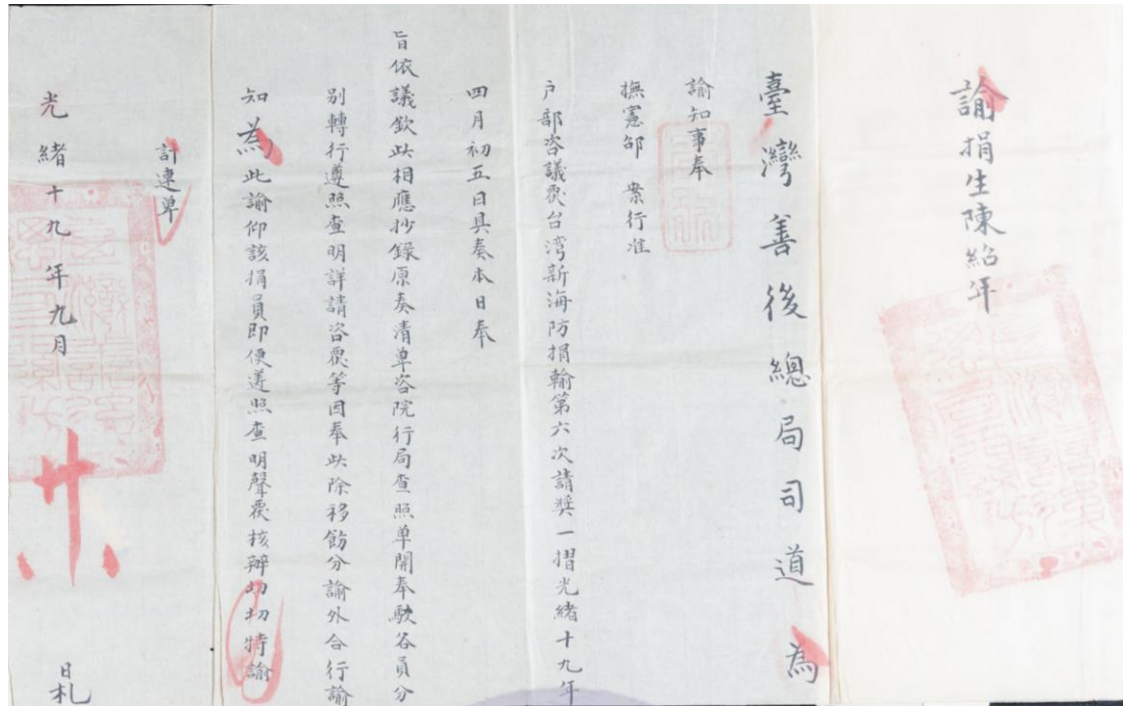 諭捐生陳紹年
臺灣善後總局司道 為
諭知事奉
撫憲邵 案行准
户部咨議覆台湾新海防捐輸第六次請獎一摺光緒十九年
四月初五日具奏本日奉
旨依議欽此相應抄錄原奏清单咨院行局查照单開奉駁各員分
別轉行遵照查明詳請咨覆等因奉此除移飭分諭外合行諭
知為此諭仰該捐員即便遵照查明聲覆核辦切切特諭
計連单
光緒十九年九月 日札